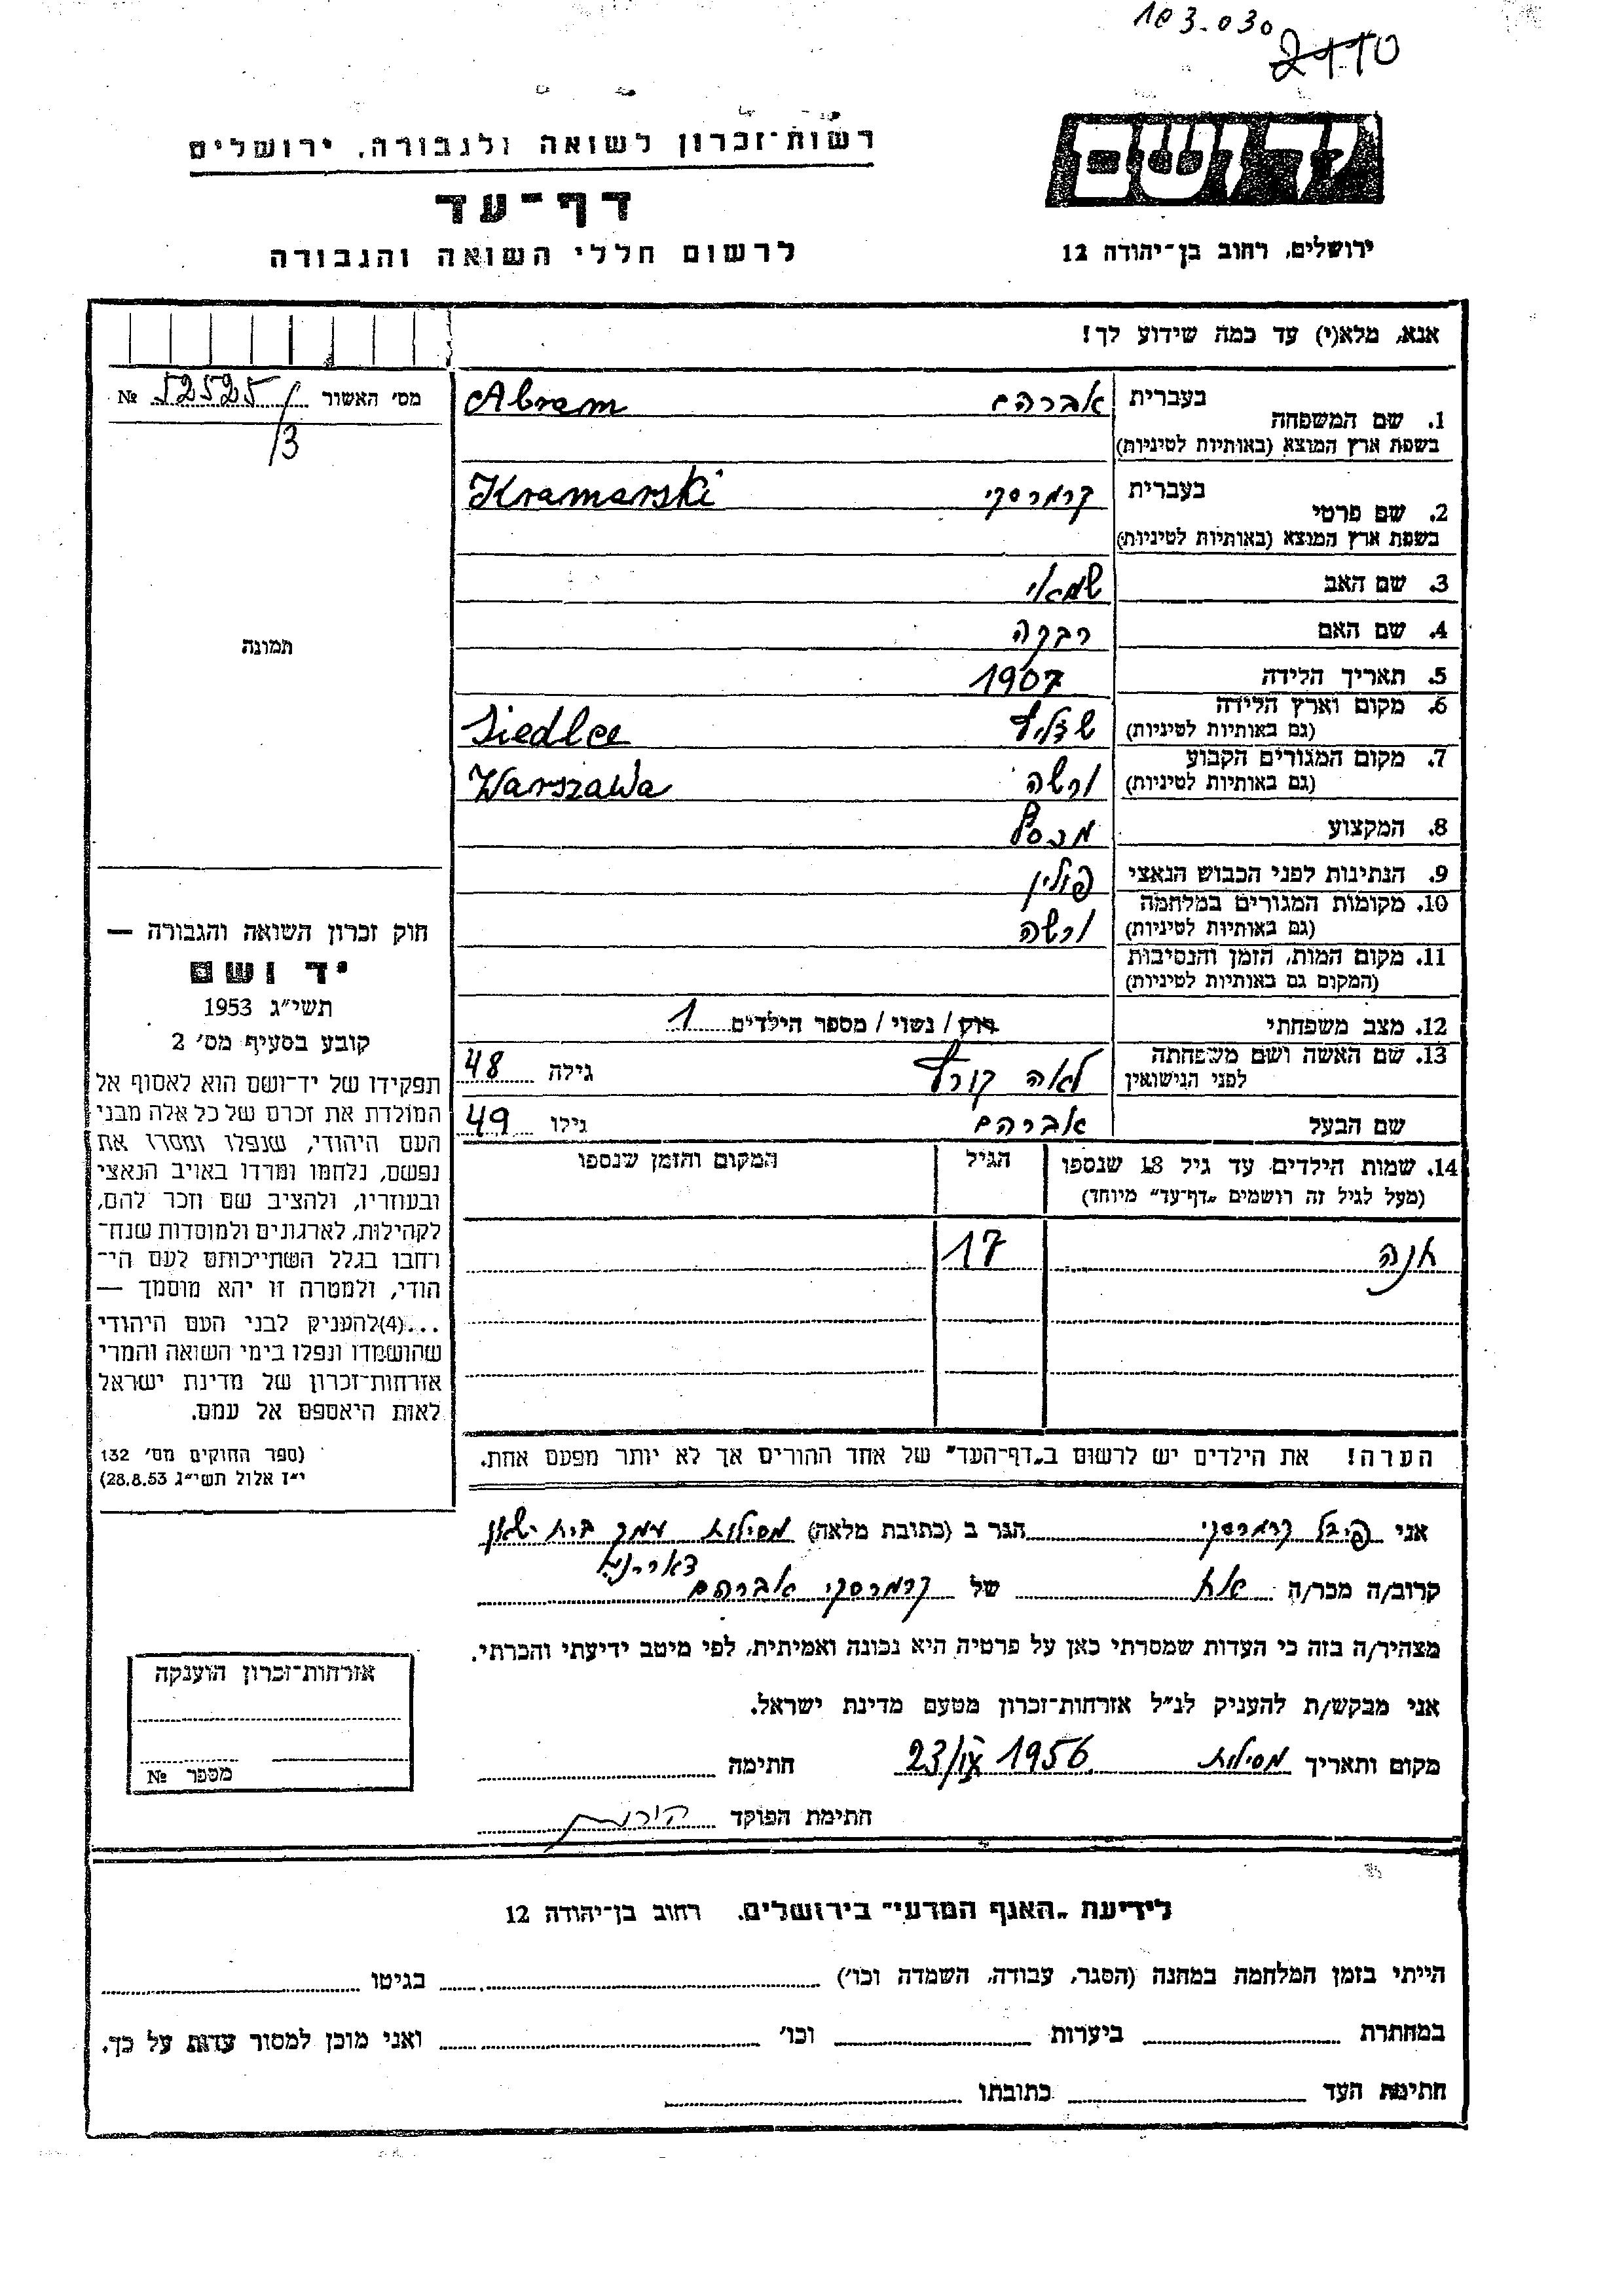 103.030
2110
רשות־זכרון לשואה ולגבורה, ירושלים
דף־עד
לרשום חללי השואה והגבורה
יד ושם
ירושלים, רחוב בן־יהודה 12
אנא, מלא(י) עד כמה שידוע לך!
מס' האשור 52525/3 №
תמונה
1. שם המשפחה בעברית אברהם Abram
בשפת ארץ המוצא (באותיות לטיניות)
2. שם פרטי בעברית קרמרסקי Kramarski
בשפת ארץ המוצא (באותיות לטיניות)
3. שם האב שמאי
4. שם האם רבקה
5. תאריך הלידה 1907
6. מקום וארץ הלידה שדליץ Siedlce
(גם באותיות לטיניות)
7. מקום המגורים הקבוע ורשה Warszawa
(גם באותיות לטיניות)
8. המקצוע
9. הנתינות לפני הכבוש הנאצי פולין
10. מקומות המגורים במלחמה ורשה
(גם באותיות לטיניות)
11. מקום המות, הזמן והנסיבות
(המקום גם באותיות לטיניות)
12. מצב משפחתי רוק / נשוי / מספר הילדים 1
13. שם האשה ושם משפחתה לאה גילה 48
לפני הנישואין
שם הבעל אברהם גילו 49
14. שמות הילדים עד גיל 18 שנספו הגיל המקום והזמן שנספו
(מעל לגיל זה רושמים „דף־עד" מיוחד)
חנה 17
הערה! את הילדים יש לרשום ב„דף־העד" של אחד ההורים אך לא יותר מפעם אחת.
חוק זכרון השואה והגבורה —
יד ושם
תשי"ג 1953
קובע בסעיף מס' 2
תפקידו של יד־ושם הוא לאסוף אל
המולדת את זכרם של כל אלה מבני
העם היהודי, שנפלו ומסרו את
נפשם, נלחמו ומרדו באויב הנאצי
ובעוזריו, ולהציב שם וזכר להם,
לקהילות, לארגונים ולמוסדות שנח־
רחבו בגלל השתייכותם לעם הי־
הודי, ולמטרה זו יהא מוסמך —
...(4)להעניק לבני העם היהודי
שהושמדו ונפלו בימי השואה והמרי
אזרחות־זכרון של מדינת ישראל
לאות היאספם אל עמם.
(ספר החוקים מס' 132
י"ז אלול תשי"ג 28.8.53)
אני פיבל קרמרסקי הגר ב (כתובת מלאה) מסילות עמק בית שאן
קרוב/ה מכר/ה אח של קרמרסקי אברהם
מצהיר/ה בזה כי העדות שמסרתי כאן על פרטיה היא נכונה ואמיתית, לפי מיטב ידיעתי והכרתי.
אני מבקש/ת להעניק לנ"ל אזרחות־זכרון מטעם מדינת ישראל.
מקום ותאריך מסילות 1956 חתימה
חתימת הפוקד
אזרחות־זכרון הוענקה
מספר №
לידיעת „האגף המדעי" בירושלים, רחוב בן־יהודה 12
הייתי בזמן המלחמה במחנה (הסגר, עבודה, השמדה וכו') בגיטו
במחתרת ביערות וכו' ואני מוכן למסור עדות על כך.
חתימת העד כתובתו